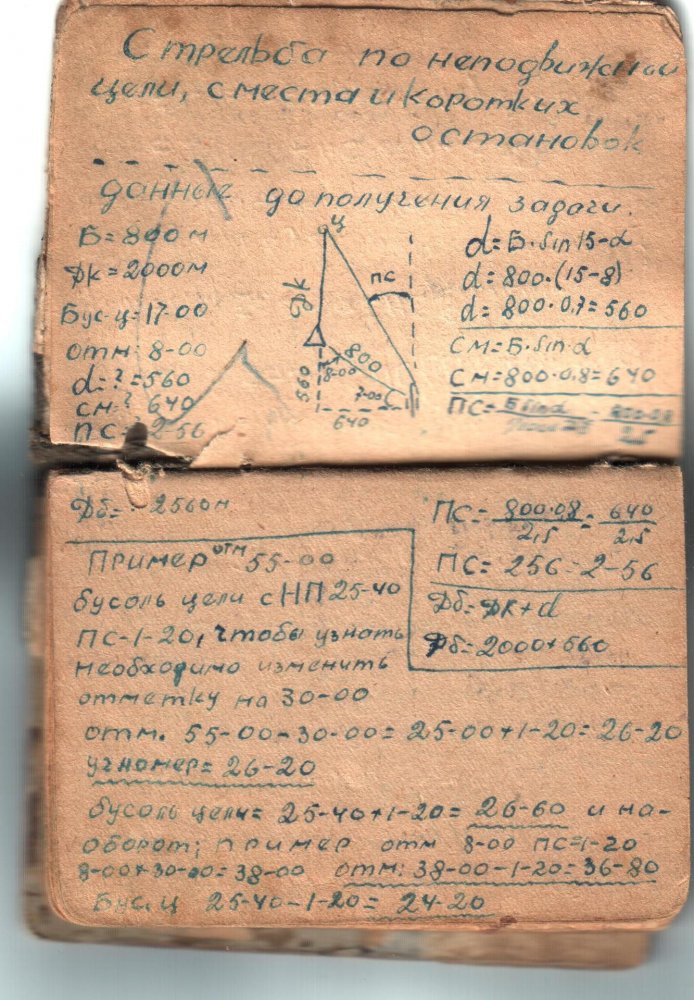 Стрельба по неподвижной
цели, с места и коротких
остановок
данные до получения задачи.
Б=800м
Дк=2000м
Бус.ц=17-00
отм. 8-00
d=?=560
см=? 640
ПС=? 2-56
Ц
Дк
ПС
800
8-00
7-00
560
640
d=Б·sin15-α
d=800·(15-8)
d=800·0,7=560
СМ=Б·sinα
СМ=800·0.8=640
ПС=
Дб= 2560м
ПС= 800·0,8/2,5 = 640/2,5
ПС=256=2-56
Дб=Дк+d
Дб=2000+560
Пример отм 55-00
бусоль цели с НП 25-40
ПС-1-20, чтобы узнать
необходимо изменить
отметку на 30-00
отм. 55-00-30-00=25-00+1-20=26-20
угномер=26-20
бусоль цели= 25-40+1-20= 26-60 и на-
оборот; пример отм 8-00 ПС=1-20
8-00+30-00=38-00 отм: 38-00-1-20=36-80
Бус.ц 25-40-1-20= 24-20